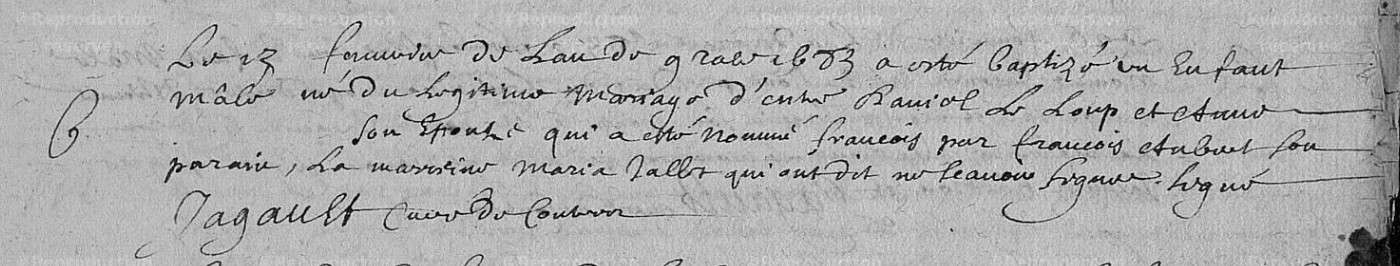 Le 13 feuvrie de Lan de grace 1683 a esté baptizé un Enfant
mâle né du Legitime Mariage d'entre Daniel Le Loup et Anne
B. son Epouse qui a esté nommé francois par francois Aubuet son
parain, La marreine Maria Tallet qui ont dit ne scavoir signer. signé
Jagault Curé de